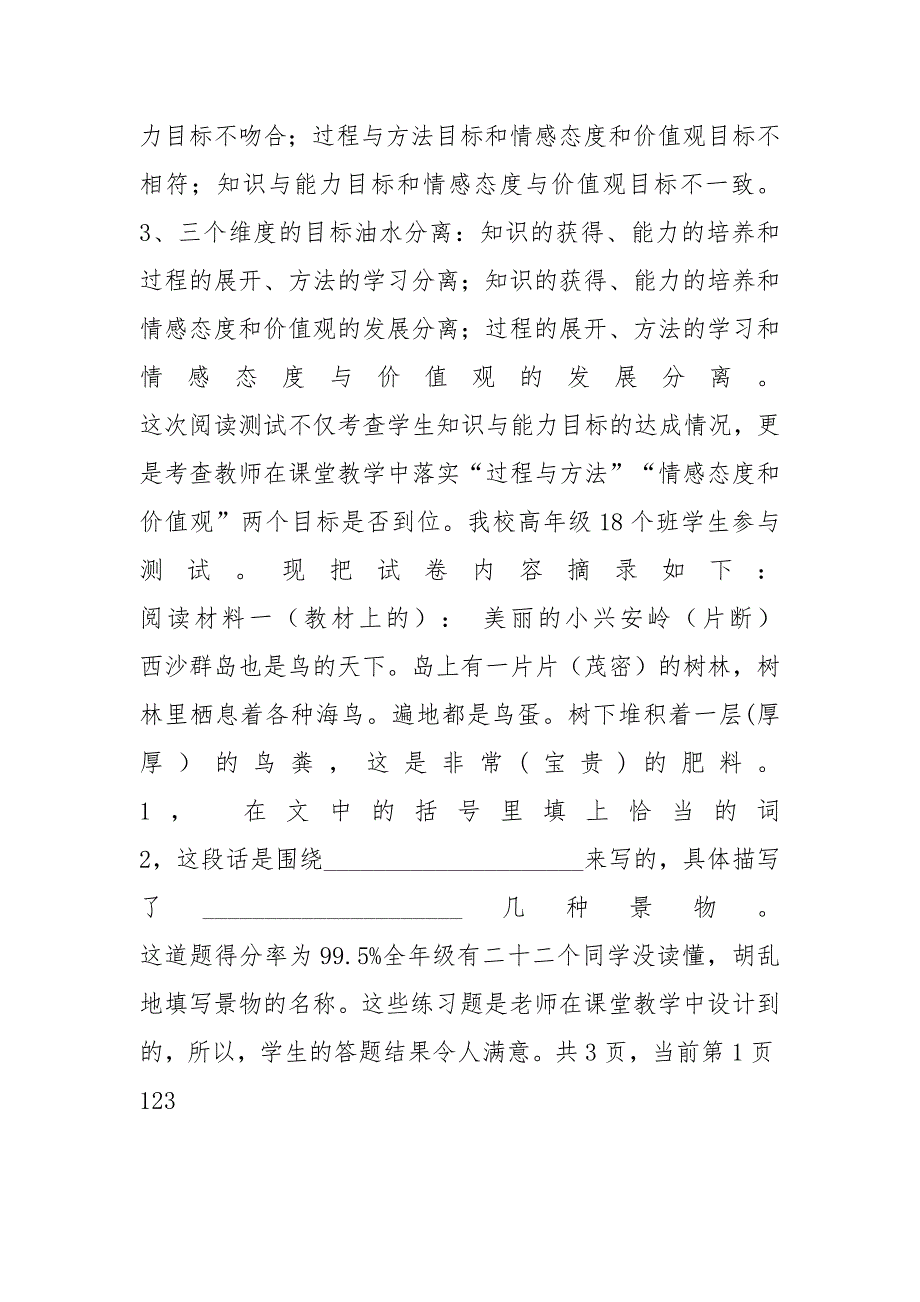 力目标不吻合；过程与方法目标和情感态度和价值观目标不
相符；知识与能力目标和情感态度与价值观目标不一致。
3、三个维度的目标油水分离：知识的获得、能力的培养和
过程的展开、方法的学习分离；知识的获得、能力的培养和
情感态度和价值观的发展分离；过程的展开、方法的学习和
情感态度与价值观的发展分离。
这次阅读测试不仅考查学生知识与能力目标的达成情况，更
是考查教师在课堂教学中落实“过程与方法”“情感态度和
价值观”两个目标是否到位。我校高年级 18 个班学生参与
测试。现把试卷内容摘录如下：
阅读材料一（教材上的）： 美丽的小兴安岭（片断）
西沙群岛也是鸟的天下。岛上有一片片（茂密）的树林，树
林里栖息着各种海鸟。遍地都是鸟蛋。树下堆积着一层(厚
厚）的鸟粪，这是非常(宝贵)的肥料。
1， 在文中的括号里填上恰当的词
2，这段话是围绕____________________来写的，具体描写
了____________________几种景物。
这道题得分率为 99.5%全年级有二十二个同学没读懂，胡乱
地填写景物的名称。这些练习题是老师在课堂教学中设计到
的，所以，学生的答题结果令人满意。共 3 页，当前第 1 页
123